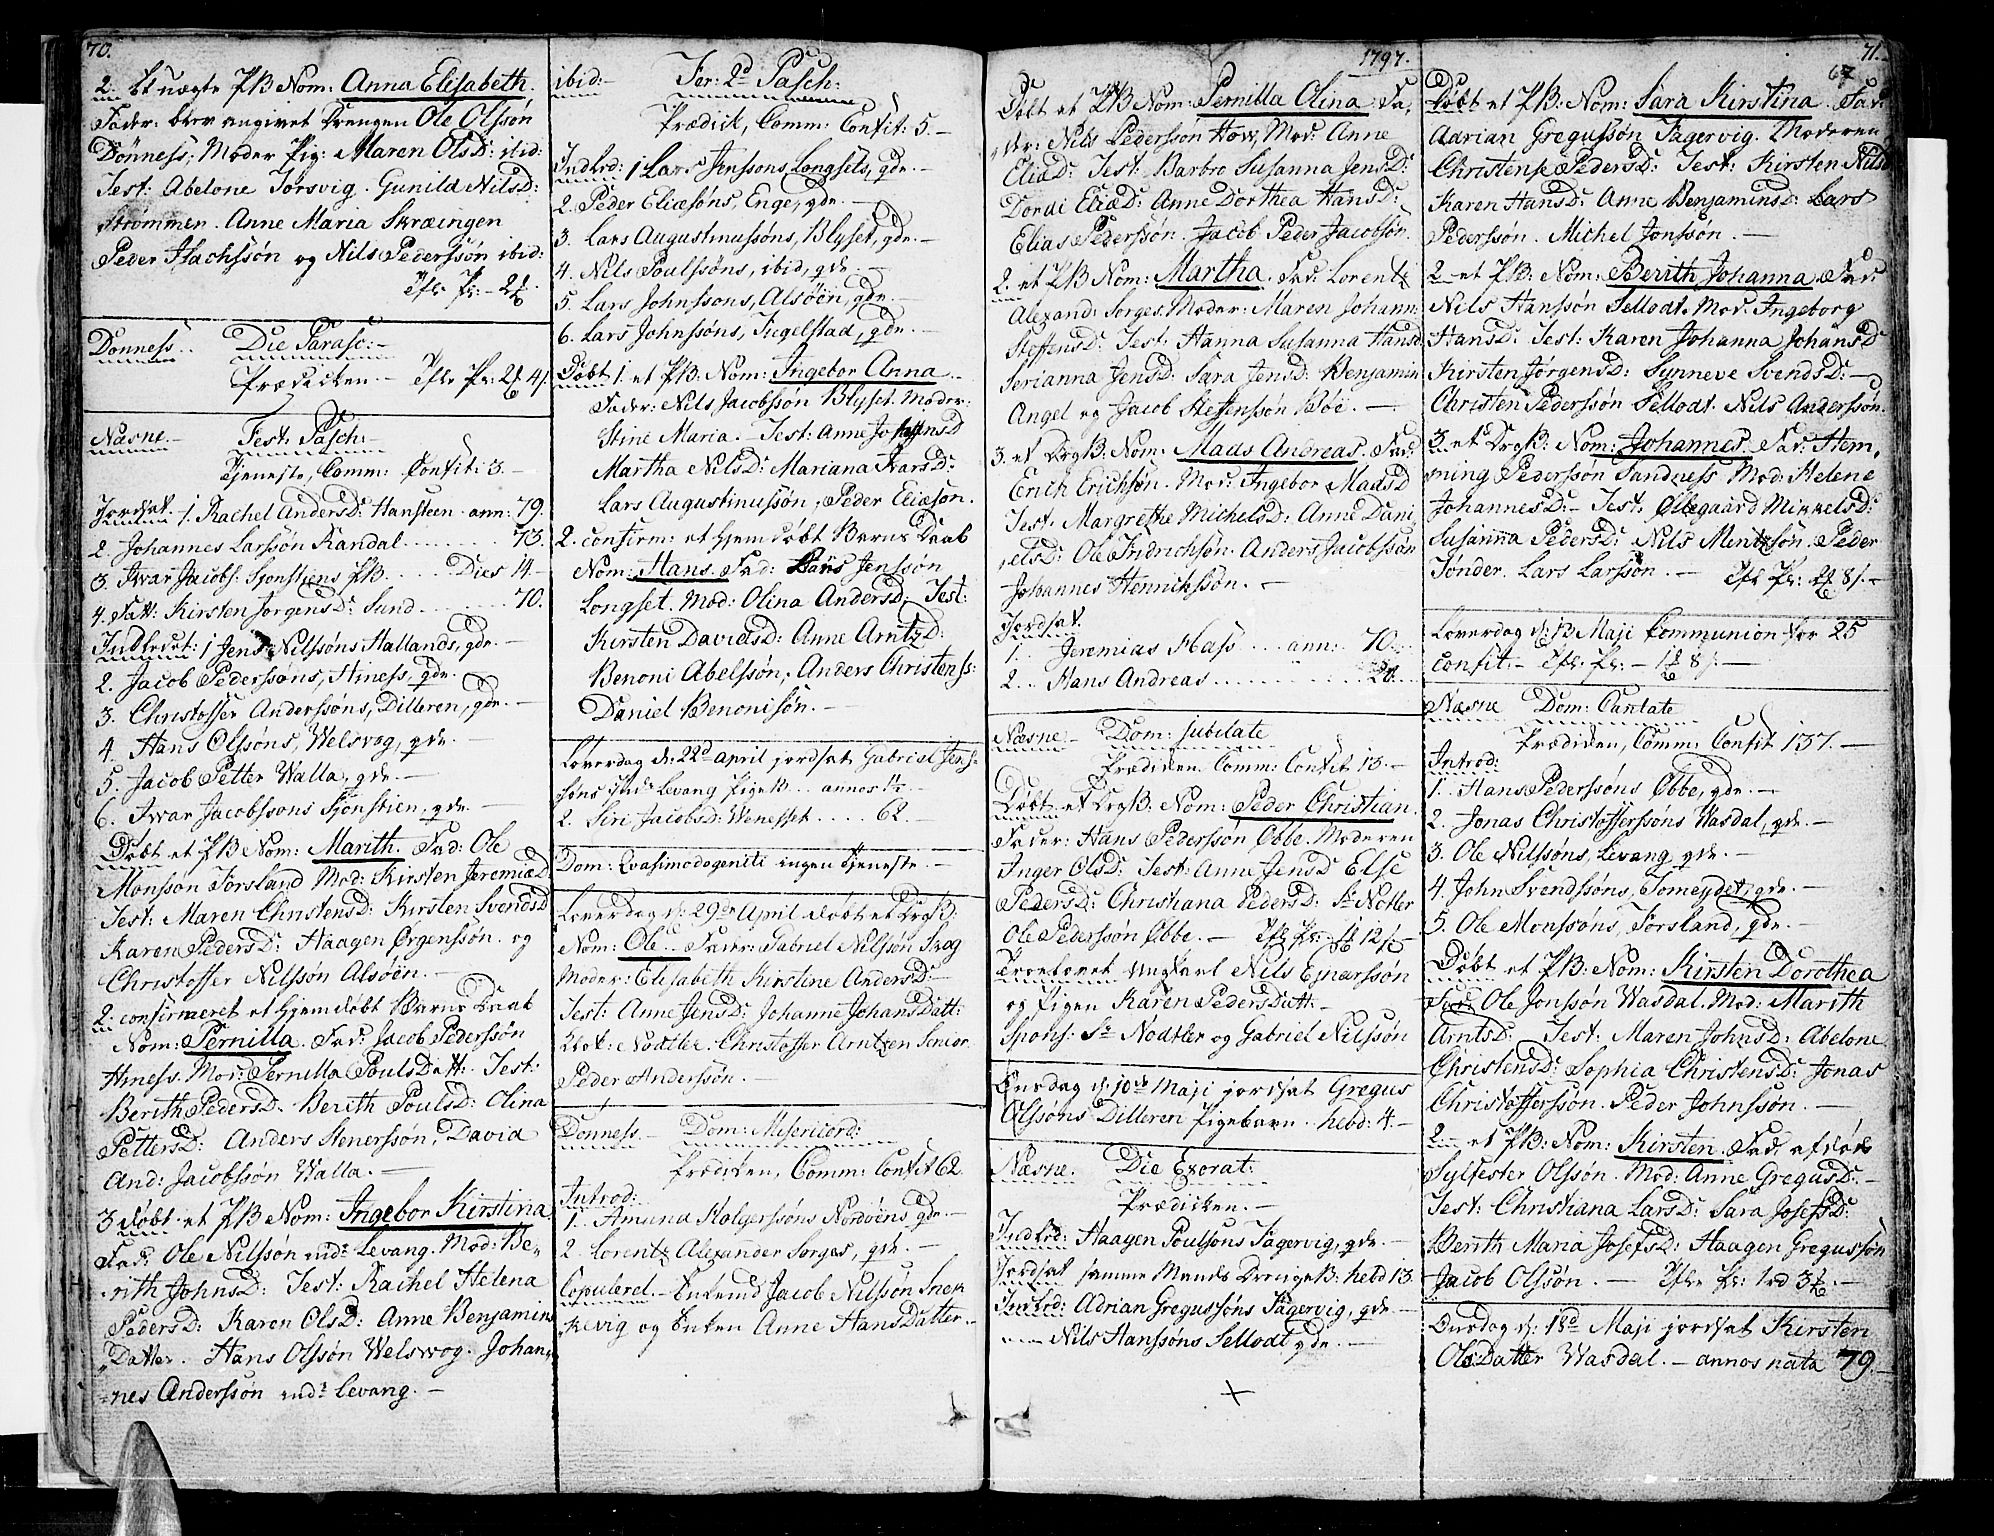 70.
2. Et uægte PB Nom: Anna Elisabeth.
Fader: blev angivet Drengen Ole Olssön
Dönness, Moder Pig: Maren OlsD: ibid:
Test: Abelone Torsvig. Gunild NilsD:
Strömmen. Anne Maria Skræingen
Peder Hachssön og Nils Pederssön ibid:
Dönness. Die Parasc:
Prædicken
Næsne. Fest: Pasch:
Tjeneste, Comm: Confit: 3.
Jordsat. 1. Rachel AndersD: Hansteen ann: 79.
2. Johannes Larssön Randal 73.
3. Iwar Jacobs: Sjonstiens PB Dies 14
4. Fatt: Kirsten JorgensD: Sund 70.
Indledet: 1 Jens Nilssöns Hallands, qde.
2. Jacob Pederssöns, Hiness, qde.
3. Christoffer Anderssöns, Dilleren, qde.
4 Hans Olssöns, Welsvog, qde.
5. Jacob Petter Walla, qde.
6. Iwar Jacobssons Sjönstien, qde
Döbt et PB Nom: Marith. Fad: Ole
Monsson Forsland Mod: Kirsten JeremiæD
Test: Maren ChristensD: Kirsten SvendsD
Karen PedersD: Haagen Örgenssön. og
Christoffer Nilssön Alsöen.
2. confirmeret et hjemdöbt Barns Daab
Nom: Pernilla. Fad: Jacob Pederssön
Hiness. Mod: Pernilla PoulsDatt: Test:
Berith PedersD. Berith PoulsD: Olina
PettersD: Anders Stenerssön, David
And: Jacobssön Walla.
3 döbt et PB Nom: Ingebor Kirstina
Fad: Ole Nilssön indr Levang. Mod: Be-
rith JohnsD: Test: Rachel Helena
PedersD: Karen OlsD: Anne Benjamins
Datter. Hans Olssön Welsvog. Johan-
nes Anderssön indr Levang.
ibid: Fer: 2d Pasch:
Prædick, Comm: Confit: 5.
Indled: 1 Lars Jenssons, Longsets, qde.
2. Peder Eliæsöns, Enge, qde.
3. Lars Augustinussöns, Blyset, qde.
4. Nils Poulssöns, ibid, qde.
5. Lars Johnssons, Alsöen, qde.
6. Lars Johnssöns, Tiegelstad, qde.
Döbt 1. et PB: Nom: Ingebor Anna
Fader: Nils Jacobssön Blyset. Moder:
Stine Maria. Test: Anne
Martha NilsD: Mariana IvarsD:
Lars Augustinussön, Peder Eliæson.
2. confirm: et hjemdöbt Barns Daab
Nom: Hans. Fad: Lars Jenssön
Longset. Mod: Olina AndersD: Test:
Kirsten DavidsD: Anne ArntzD:
Benoni Abelssön, Anders Christenss:
Daniel Benonisön.
Löverdag d: 22d april jordsat Gabriel Jens-
söns indr Levang PigeB annos 1½
2. Siri JacobsD: Wenesset 62.
Dom: Qvasimodogeniti ingen Tjeneste.
Löverdag d: 29de April döbt et DrgB.
Nom: Ole. Fader: Gabriel Nilssön Skog
Moder: Elisabeth Kirstine AndersD:
Test: Anne JensD: Johanne JohansDatt:
Klok: Nodtler. Christoffer Arntzen Senior
Peder Anderssön.
Donness. Dom: Misericord:
Prædiken, Comm: Confit 62
Introd:
1. Amund Holgerssöns Nordöens qde.
2. Lorentz Alexander Sorges, qde.
Copuleret. Enkemd Jacob Nilssön Snek
kevig og Enken Anne HansDatter
1797.
Döbt et PB Nom: Pernilla Olina Fa-
der: Nils Pederssön How, Mod: Anne
EliæD: Test: Barbro Susanna JensD:
Dordi EliæD: Anne Dorthea HansD:
Elias Pederssön. Jacob Peder Jacobsön.
2. et PB Nom: Martha. Fad: Lorentz
Alexand: Sorges. Moder: Maren Johann:
SteffensD: Test: Hanna Susanna HansD
Serianna JensD. Sara JensD: Benjamin
Angel og Jacob Steffenssön Böe.
3. et DrgB: Nom: Mads Andreas. Fad:
Erich Erichssön. Mod: Ingebor MadsD
Test: Margrethe MichelsD: Anne Dani-
elsD: Ole Fridrichsön. Anders Jacobssön
Johannes Henrikssön.
Jordsat.
1. Jeremias Hass ann: 70.
2. Hans Andreas
Næsne Dom: Jubilate
Prædiken Comm: Confit 13.
Döbt et DrgB: Nom: Peder Christian.
Fader: Hans Pederssön Øbbe. Moderen
Inger OlsD: Test: Anne JensD Else
PedersD: Christiana PedersD: Sr Notler
Ole Pederssön Øbbe.
Troelovet Ungkarl Nils Ejnarssön
og Pigen Karen PedersDatt:
Spons: Sr Nodtler og Gabriel Nilssön
Onsdag d: 10de Maji jordsat Gregus
Olssöns Dilleren Pigebarn hebd: 4.
Næsne. Die Exorat:
Prædicken.
Indled: Haagen Poulsons Fagervig, qde.
Jordsat samme Mands DrengeB: hebd 13.
Indled: Adrian Gregussöns Fagervig, qde
Nils Hanssöns Sellodt qde.
71.
67
Döbt et PB: Nom: Sara Kirstina. Fad:
Adrian Gregussön Fagervig. Moderen
Christense PedersD: Test: Kirsten NilsD
Karen HansD: Anne BenjaminsD: Lars
Pederssön. Michel Jonssön.
2. et PB: Nom: Berith Johanna Fad:
Nils Hanssön Sellodt. Mod. Ingeborg
HansD: Test: Karen Johanna JohansD
Kirsten JörgensD: Synneve SvendsD:
Christen Pederssön Sellodt. Nils Anderssön.
3. et DrgB: Nom: Johannes. Fad: Hem-
ming Pederssön Sandness Mod: Helene
JohannesD: Test: Øllegaard MikkelsD:
Susanna PedersD: Nils Mentzsön. Peder
Tönder. Lars Larssön.
Löverdag d: 13 Maji Communion for 25
Confit:
Næsne Dom: Cantate
Prædiken, Comm: Confit 137.
Introd:
1. Hans Pederssöns Øbbe, qde.
2. Jonas Christofferssöns Wasdal, qde.
3. Ole Nilssöns, Levang qde.
4. John Svendssöns, Someydet, qde.
5. Ole Monssöns, Forsland, qde.
Döbt et PB: Nom: Kirsten Dorothea
Fad: Ole Jonssön Wasdal. Mod: Marith
ArntsD: Test: Maren JohnsD: Abelone
ChristensD: Sophia ChristensD: Jonas
Christofferssön. Peder Johnssön.
2. et PB: Nom: Kirsten. Fad: afdöde
Sylfester Olssön. Mod: Anne GregusD:
Test: Christiana LarsD: Sara JosefsD:
Berith Maria JosefsD: Haagen Gregussön
Jacob Olssön.
Onsdag d: 18d Maji jordsat Kirsten
OlsDatter Wasdal. annos nata 79.